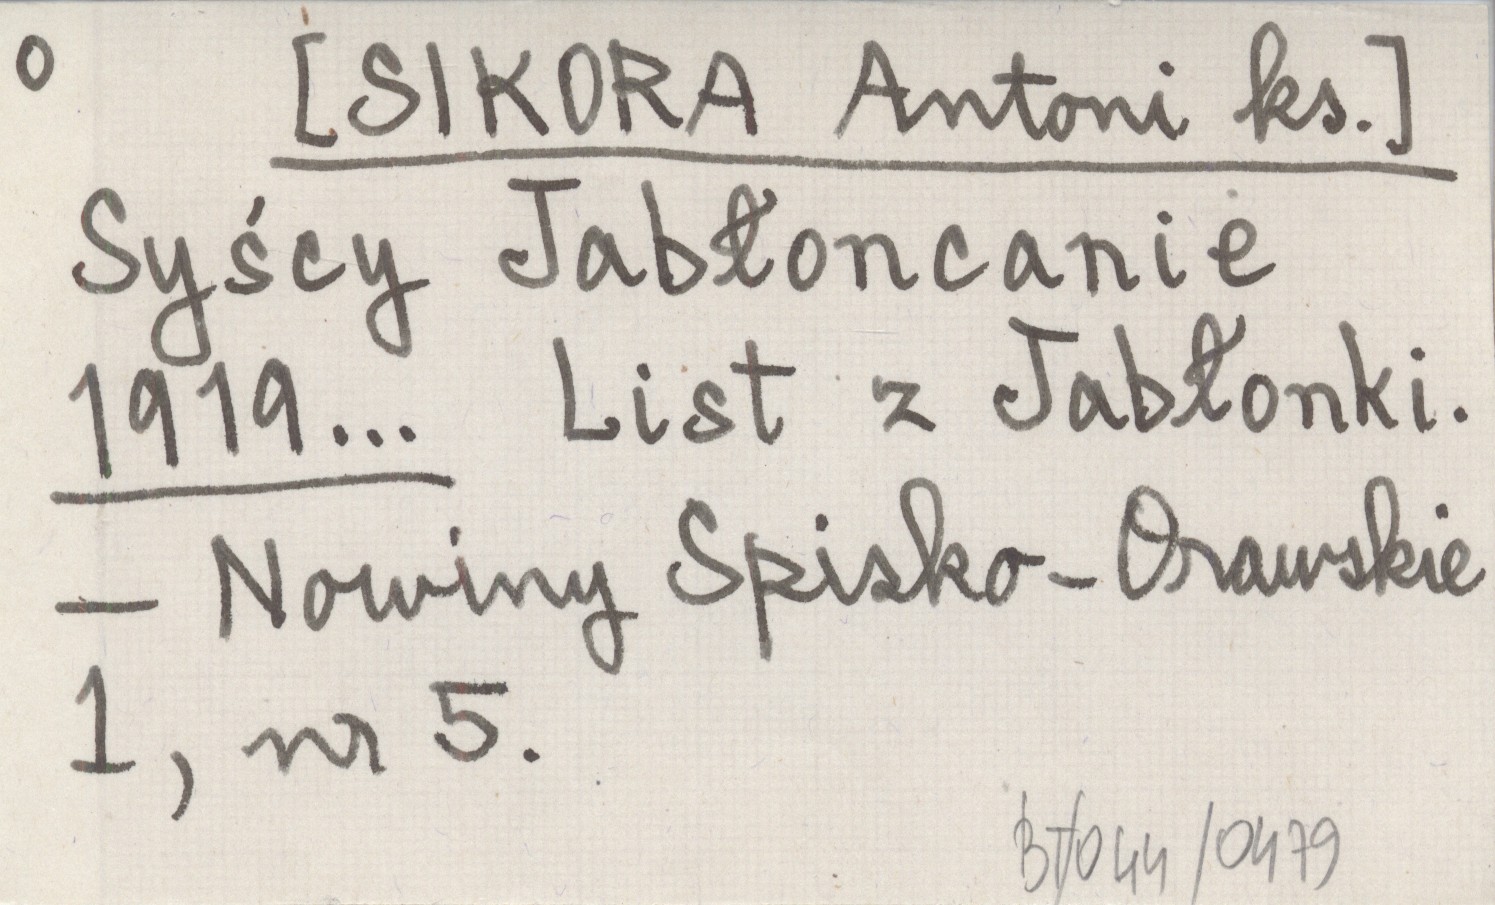 o [SIKORA Antoni ks.]
Syścy Jabłoncanie
1919... List z Jabłonki.
— Nowiny Spisko-Orawskie
1, nr 5.
BT/044/0479